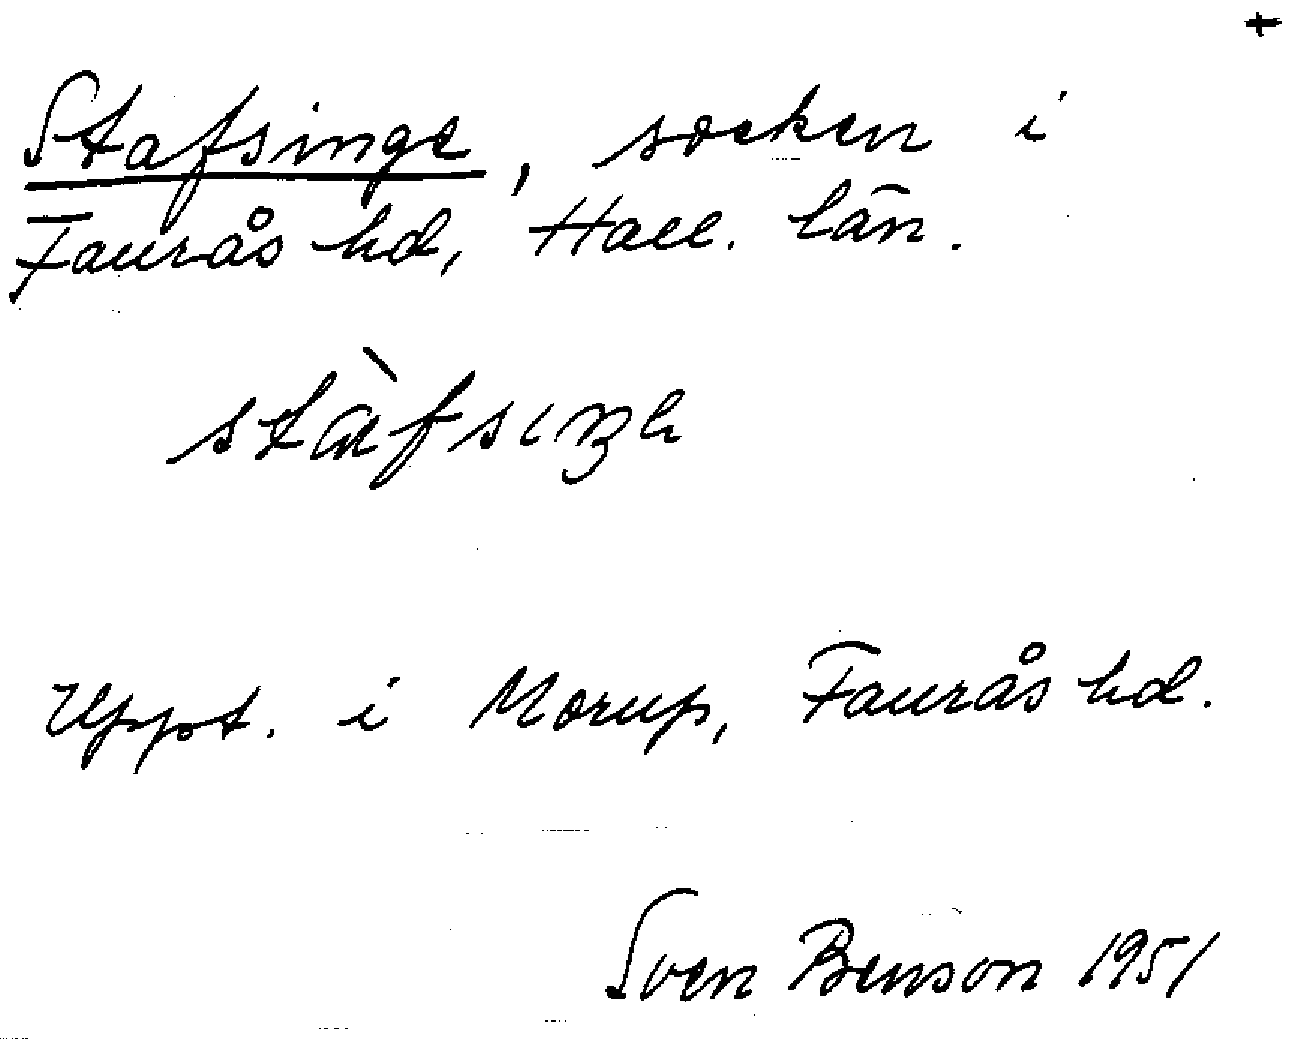 +
Stafsinge, socken i
Faurås hd, Hall. län.
Uppt. i Morup, Faurås hd.
Sven Benson 1951